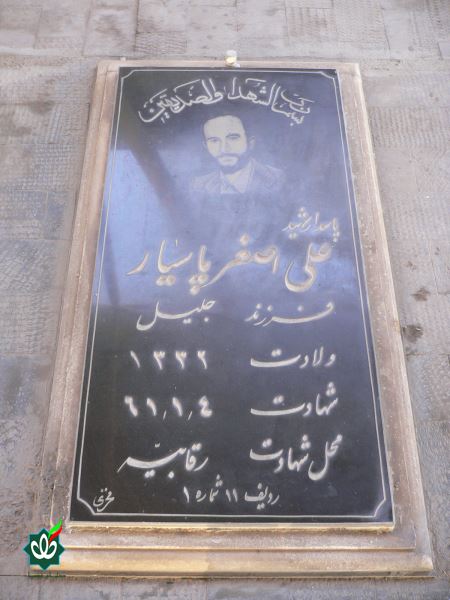 بسم رب الشهدا والصدیقین
پاسدار شهید
علی اصغر پاسیار
فرزند جلیل
ولادت ۱۳۳۲
شهادت ۶۱٫۱٫۴
محل شهادت رقابیه
ردیف ۱۱ شماره ۱